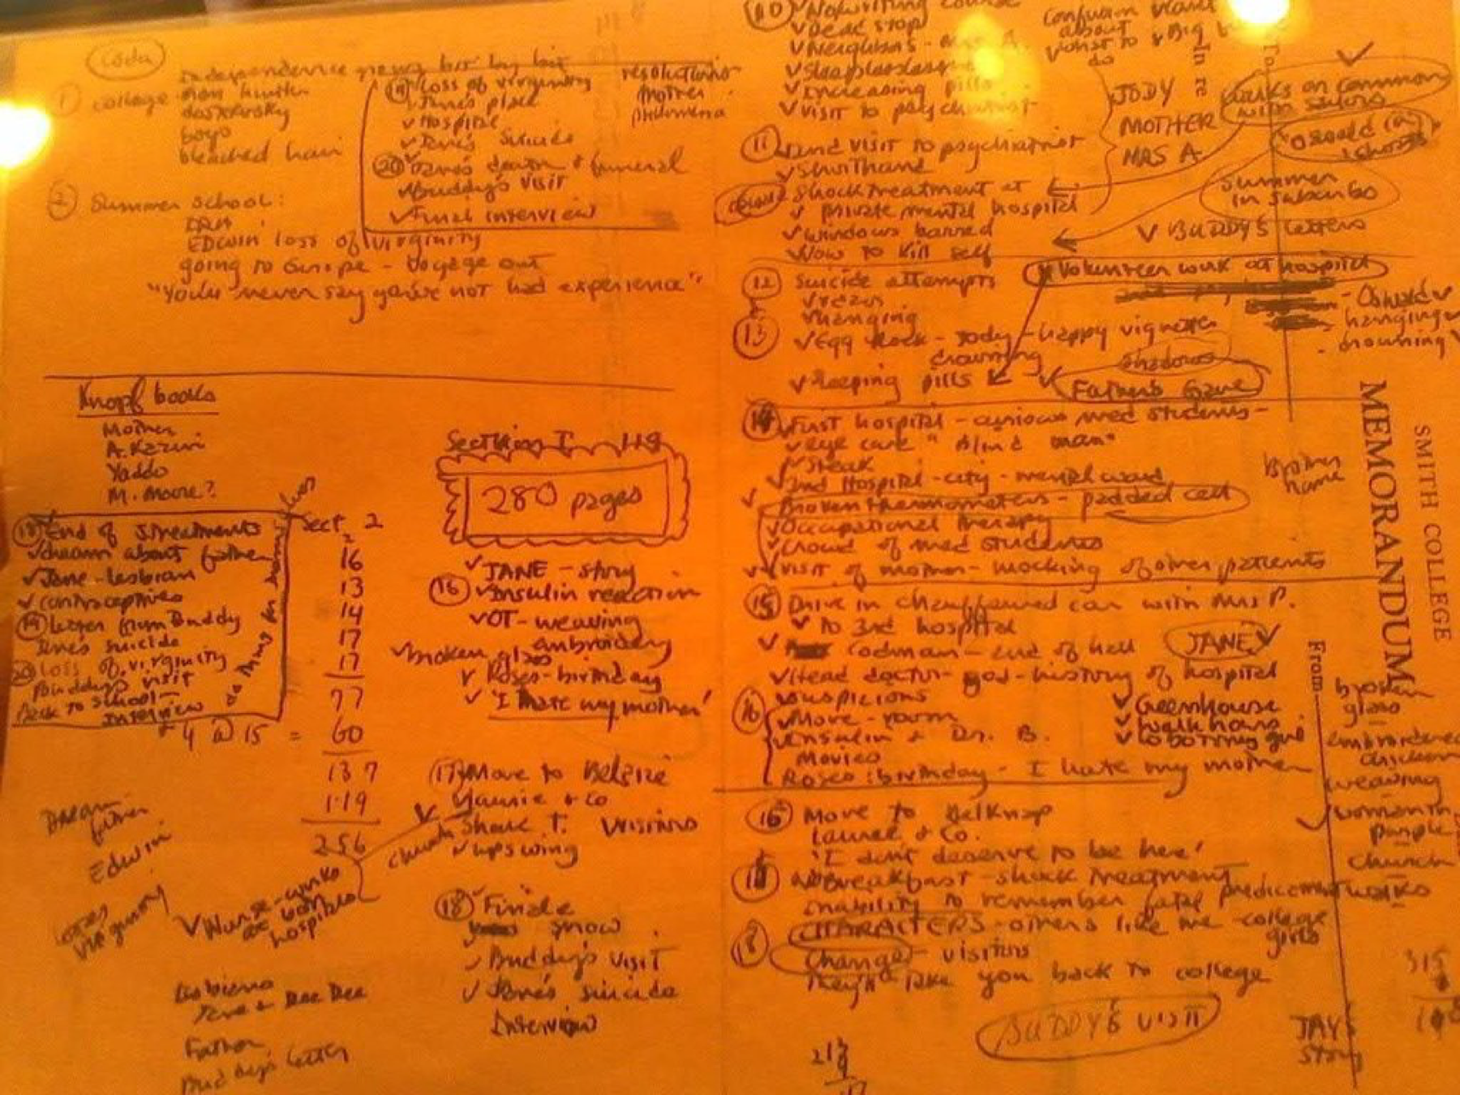 Coda
Independence grows bit by bit
① college - man hunter
dostoevsky
boys
bleached hair
② Summer school:
Irwin
EDWIN loss of virginity
going to Europe - voyage out
"You'll never say you've not had experience"
⑲ loss of virginity
✓ Jane's place
✓ Hospital
✓ Jane's Suicide
⑳ Jane's death & funeral
✓ Buddy's visit
✓ Final interview
resolutions
mother
philomena
Knopf books
Mother
A. Kazin
Yaddo
M. Moore?
⑱ End of streatments
✓ dream about father
✓ Jane - lesbian
✓ contraceptives
⑲ letter from Buddy
Jane's suicide
⑳ Loss of virginity
Buddy's visit
Back to school -
Interview
Sect. 2
16
13
14
17
17
77
+ 4 @ 15 = 60
137
119
256
Dream
father
Edwin
loses
virginity
✓ Nurse - works
at both
hospitals
Lesbians
Jane & Dee Dee
Father
Buddy's letter
Section I 119
280 pages
✓ JANE - story
⑯ ✓ Insulin reaction
✓ OT - weaving
embroidery
✓ broken glass
✓ Roses - birthday
✓ 'I hate my mother'
⑰ Move to Belsize
Laurie & Co
✓ Shock T. Visitors
church
✓ upswing
⑱ Finale
snow
✓ Buddy's visit
✓ Jane's suicide
Interview
⑩ ✓ No writing course
✓ Dead stop
✓ Neighbors - Mrs A.
✓ Sleeplessness
✓ Increasing pills
✓ Visit to psychiatrist
confusion
about
what to
do
JODY
MOTHER
MRS A
⑪ 2nd visit to psychiatrist
✓ Shorthand
Shock treatment at
✓ private mental hospital
✓ windows barred
How to kill self
✓
walks on common
with sailors
Summer
in suburbs
✓ BUDDY'S letters
⑫ Suicide attempts
✓ razor
✓ hanging
✓ Volunteer work at hospital
- Oswald ✓
- hanging ✓
- drowning ✓
⑬ ✓ Egg Rock - Jody - happy vignette
drowning
shadows
✓ sleeping pills
✓ Father's Grave
⑭ ✓ First hospital - curious med students -
✓ eye care "blind man"
✓ Steak
✓ 2nd Hospital - city - mental ward
✓ Broken thermometers - padded cell
✓ Occupational therapy
✓ crowd of med students
✓ visit of mother - mocking of other patients
brother's
name
⑮ Drive in chauffeured car with Mrs P.
✓ to 3rd hospital
✓ Codman - end of hall
JANE ✓
✓ Head doctor - god - history of hospital
suspicions
⑯ ✓ Move - room
✓ Insulin & Dr. B.
Movies
Roses: birthday - I hate my mother
✓ Greenhouse
✓ walk hours
✓ Lobotomy girl
⑯ Move to Belknap
Laurel & Co.
'I don't deserve to be here'
⑰ no Breakfast - shock treatment
inability to remember fatal predicament
⑱ CHARACTERS - others like me - college
girls
Change - visitors
They'll take you back to college
BUDDY'S VISIT
SMITH COLLEGE
MEMORANDUM
To
In re
From
broken
glass
embroidered
weaving
✓ woman in
purple
church
walks
JAY'S
story
315